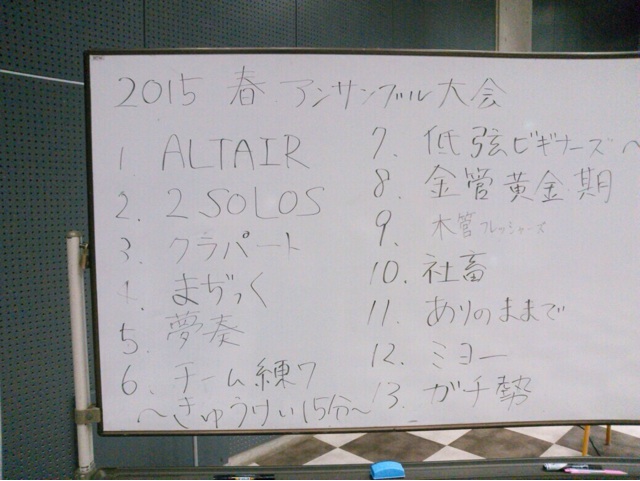 2015 春 アンサンブル大会
1 ALTAIR
2. 2 SOLOS
3. クラパート
4. まぢっく
5. 夢奏
6. チーム練ワ
～きゅうけい15分～
7. 低弦ビギナーズへ
8. 金管黄金期
9. 木管フレッシャーズ
10. 社畜
11. ありのままで
12. ミヨー
13. ガチ勢